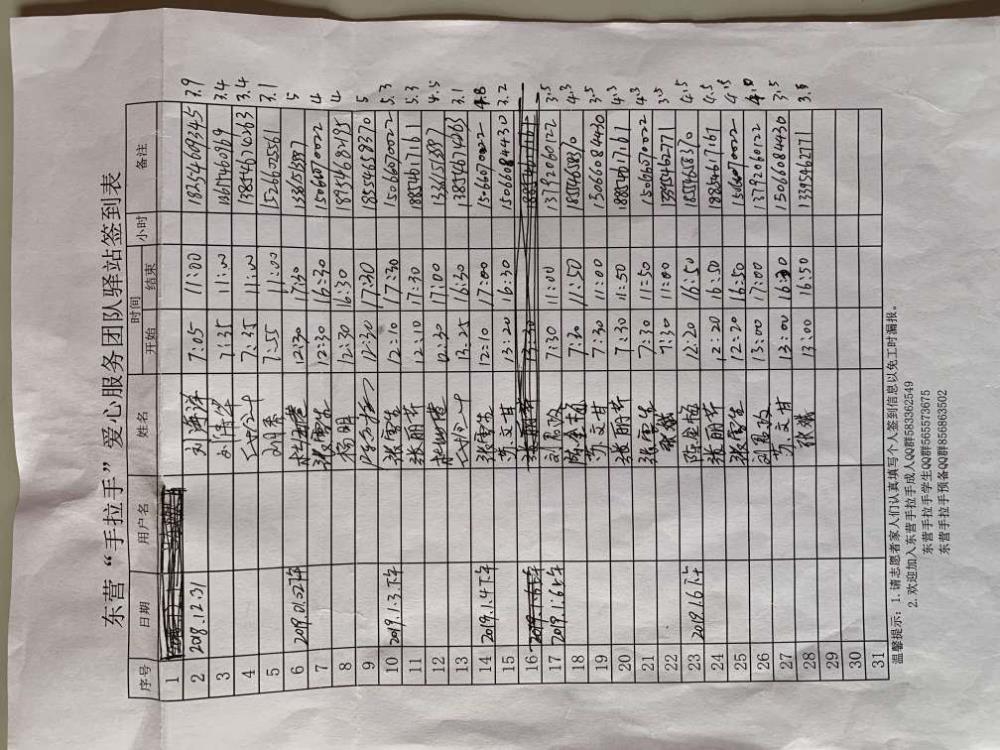 东营“手拉手”爱心服务团队驿站签到表
序号 日期 用户名 姓名 时间 小时 备注
开始 结束
1
2 2018.12.31 刘海洋 7:05 11:00 18254609345 3.9
3 7:35 11:00 3.4
4 7:35 11:00 13854674263 3.4
5 7:55 11:00 15266025561 3.1
6 2019.01.02下午 12:30 17:30 5
7 张雪生 12:30 16:30 15066070022 4
8 杨明 12:30 16:30 18954682195 4
9 12:30 17:30 18554658370 5
10 2019.1.3下午 张雪生 12:10 17:30 15066070022 5.3
11 张丽芹 12:10 17:30 18854617161 5.3
12 12:30 17:00 4.5
13 13:25 16:30 13854674263 3.1
14 2019.1.4下午 张雪生 12:10 17:00 15066070022 4.8
15 苏文甘 13:20 16:30 15066084430 3.2
16
17 2019.1.6上午 7:30 11:00 13792060122 3.5
18 7:30 11:50 18554658370 4.3
19 苏文甘 7:30 11:00 15066084430 3.5
20 张丽芹 7:30 11:50 18854617161 4.3
21 张雪生 7:30 11:50 15066070022 4.3
22 7:30 11:00 13395462771 3.5
23 2019.1.6下午 12:20 16:50 18554658370 4.5
24 张丽芹 12:20 16:50 18854617161 4.5
25 张雪生 12:20 16:50 15066070022 4.5
26 13:00 17:00 13792060122 4.0
27 苏文甘 13:00 16:30 15066084430 3.5
28 13:00 16:50 13395462771 3.8
29
30
31
温馨提示：1.请志愿者家人们认真填写个人签到信息以免工时漏报。
2.欢迎加入东营手拉手成人QQ群583362549
东营手拉手学生QQ群565573675
东营手拉手预备QQ群856863502